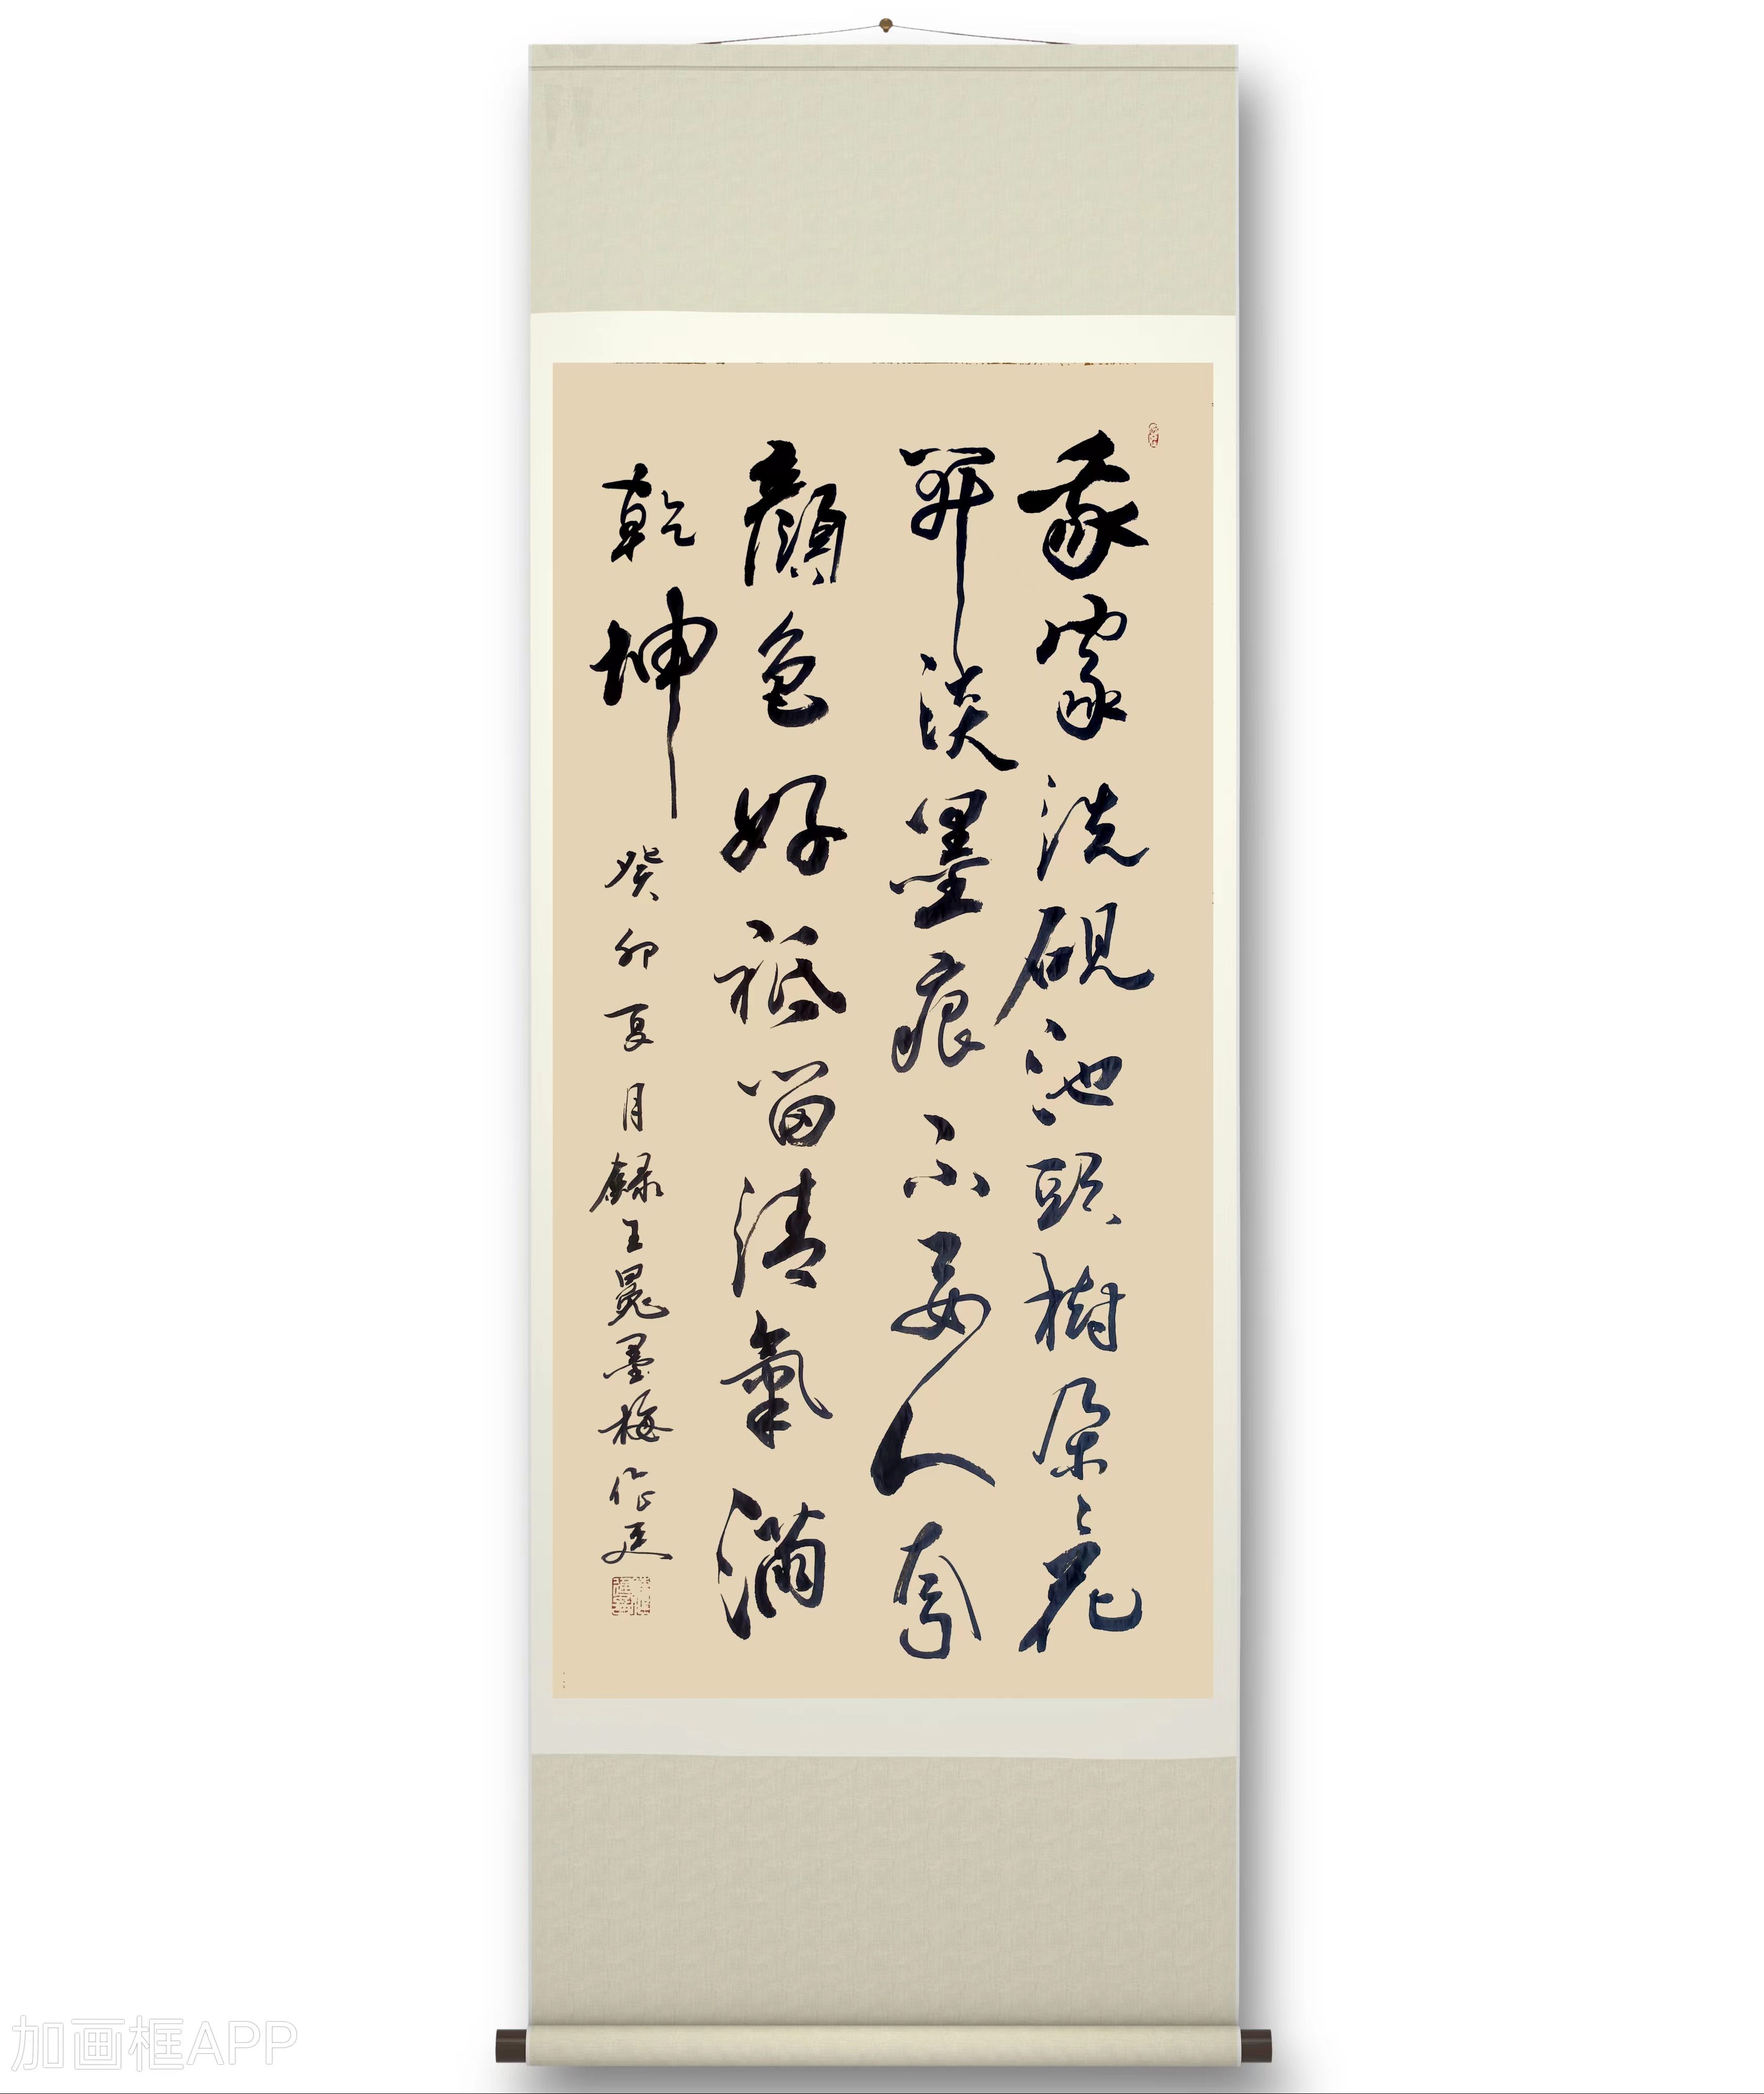 我家洗硯池頭樹朶〻花
開淡墨痕不要人夸
顏色好祗留清氣滿
乾坤
癸卯夏月錄王冕墨梅 作廷
加画框APP